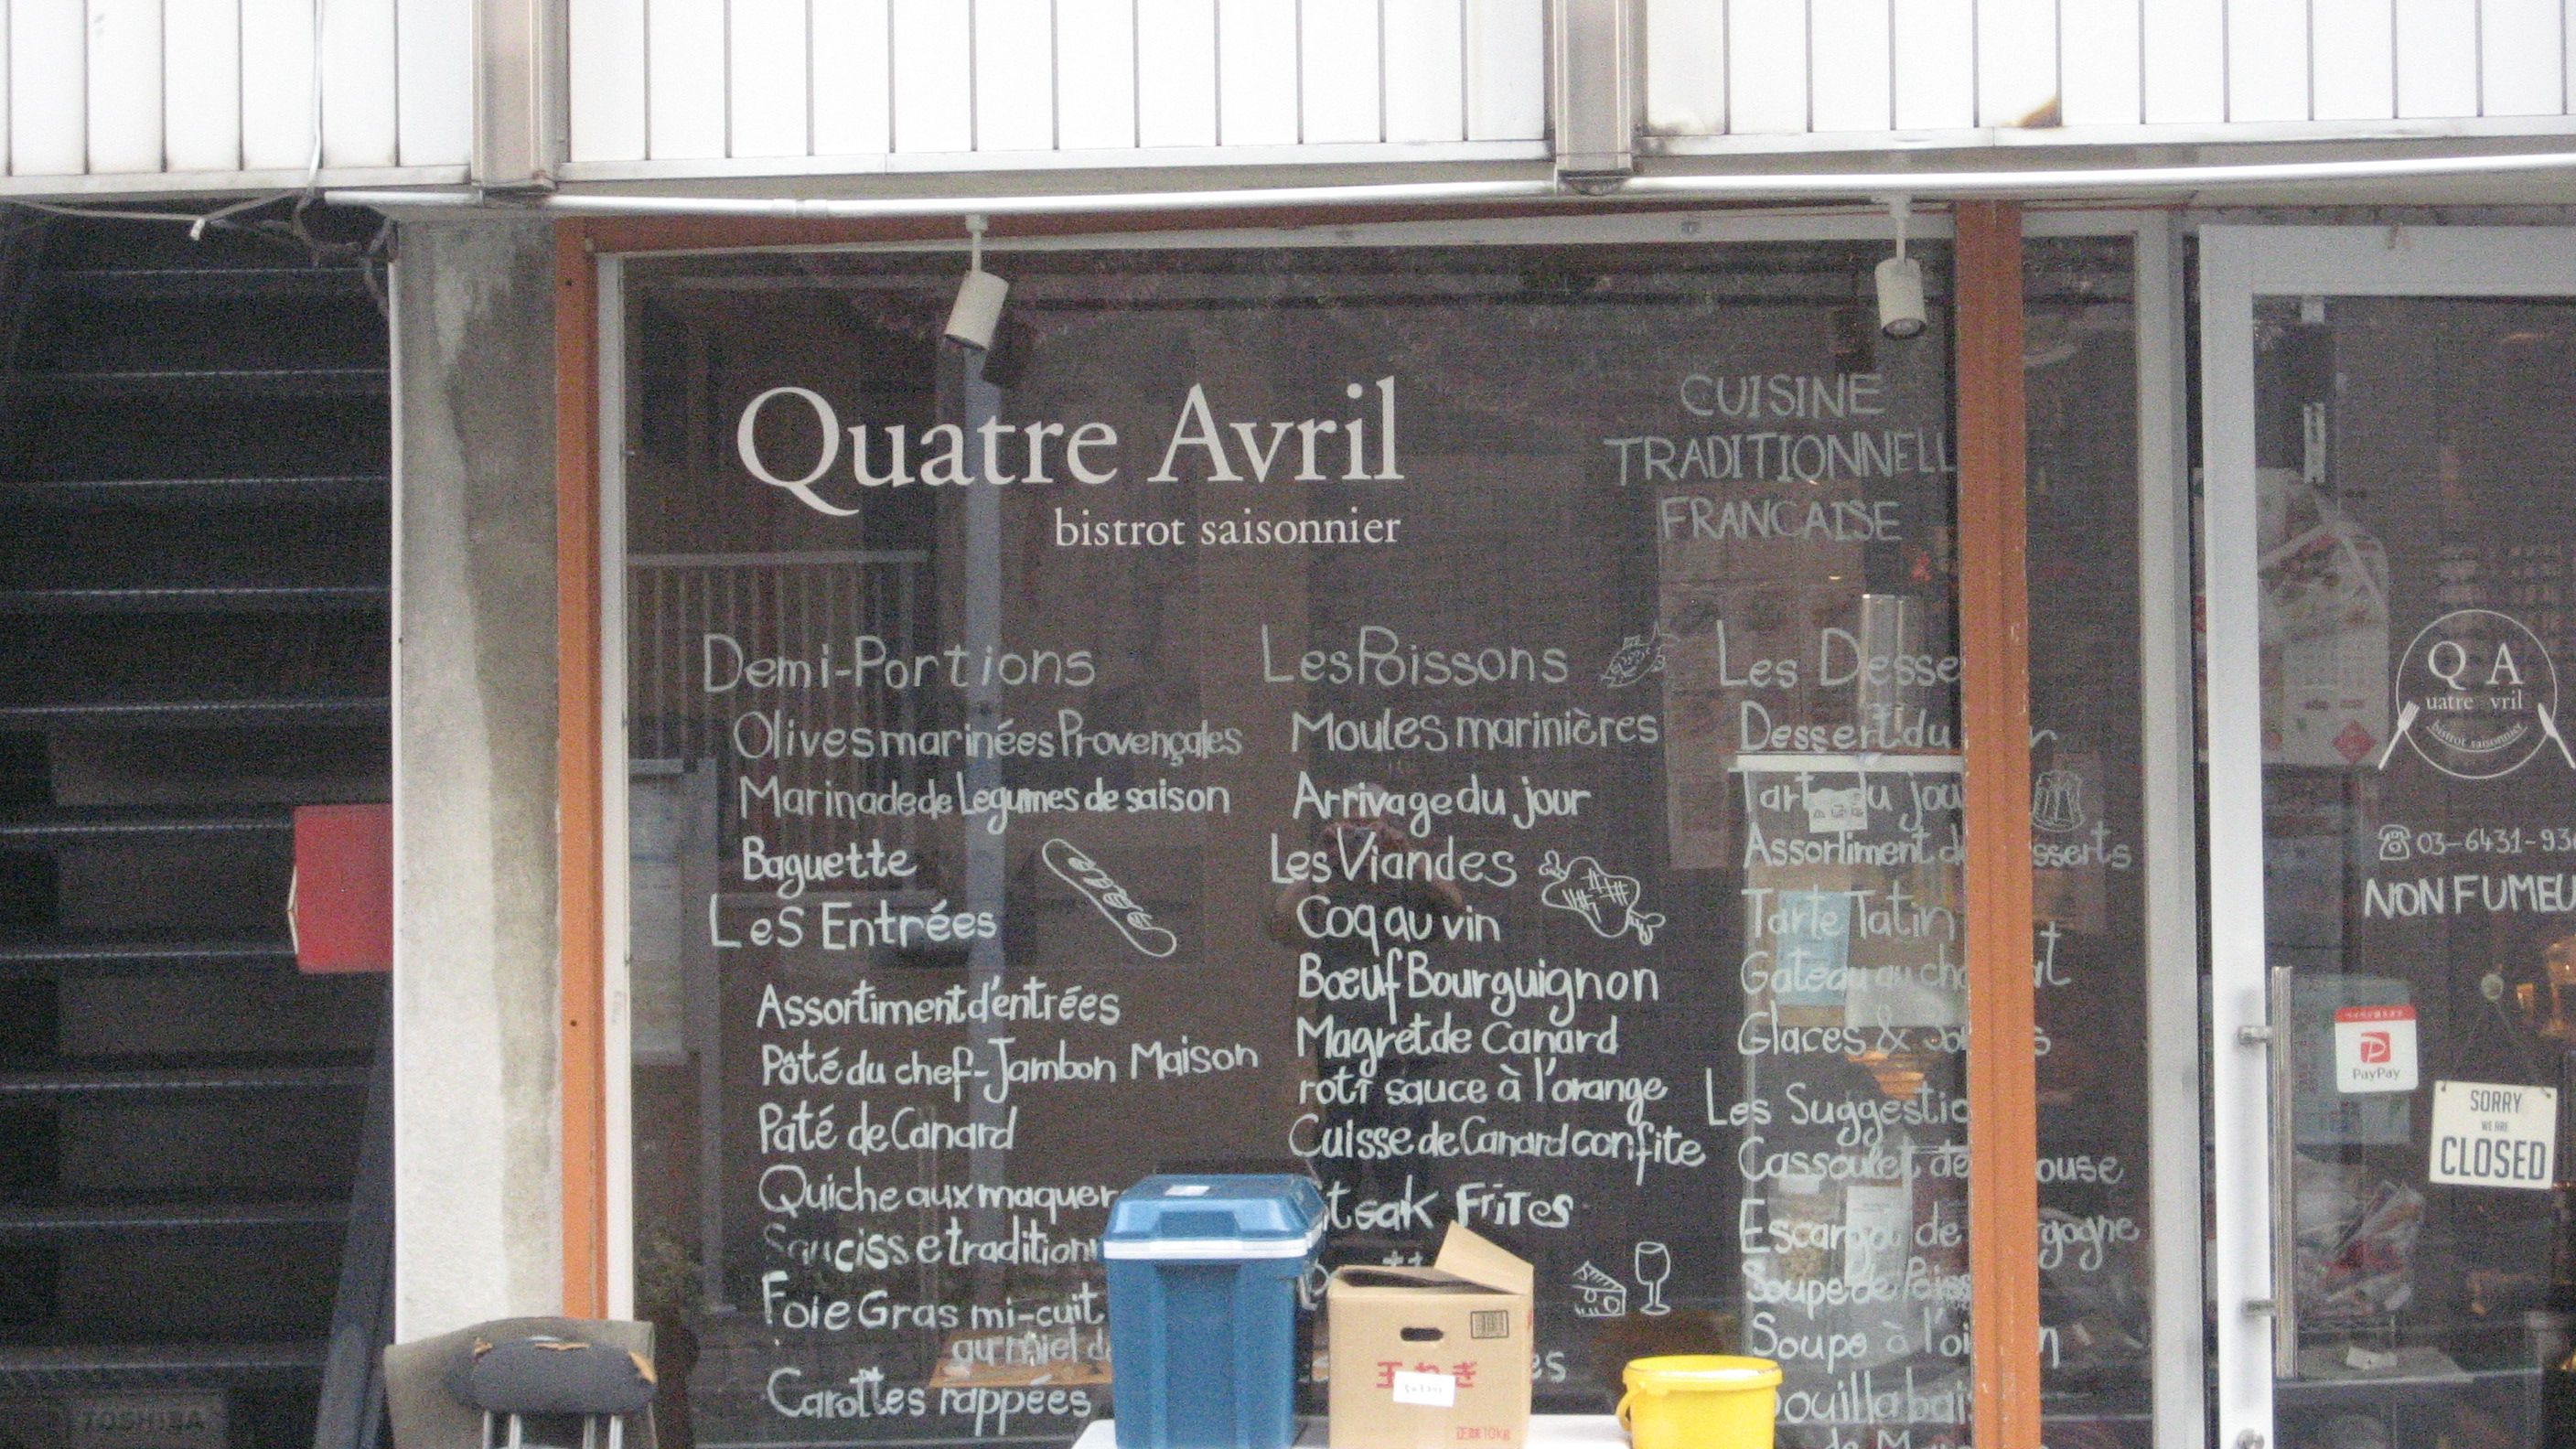 Quatre Avril
bistrot saisonnier
CUISINE
TRADITIONNELL
FRANCAISE
Demi-Portions
Olives marinées Provençales
Marinade de Legumes de saison
Baguette
Les Entrées
Assortiment d'entrées
Pâté du chef-Jambon Maison
Paté de Canard
Quiche aux maquer
Saucisse tradition
Foie Gras mi-cuit
au miel d
Carottes rappées
Les Poissons
Moules marinières
Arrivage du jour
Les Viandes
Coq au vin
Bœuf Bourguignon
Magret de Canard
roti sauce à l'orange
Cuisse de Canard confite
Frites
Les Desse
Dessert du
du jou
Assortiment de sserts
Tarte Tatin
Gateau au cho at
Glaces &
Les Suggestio
Cassoulet de ouse
Escargot de rgogne
Soupe de Poiss
Soupe à l'oi n
ouillabais
de M
Q A
uatre vril
bistrot saisonnier
03-6431-93
NON FUMEU
PayPay
SORRY
WE ARE
CLOSED
玉ねぎ
正味10kg
TOSHIBA